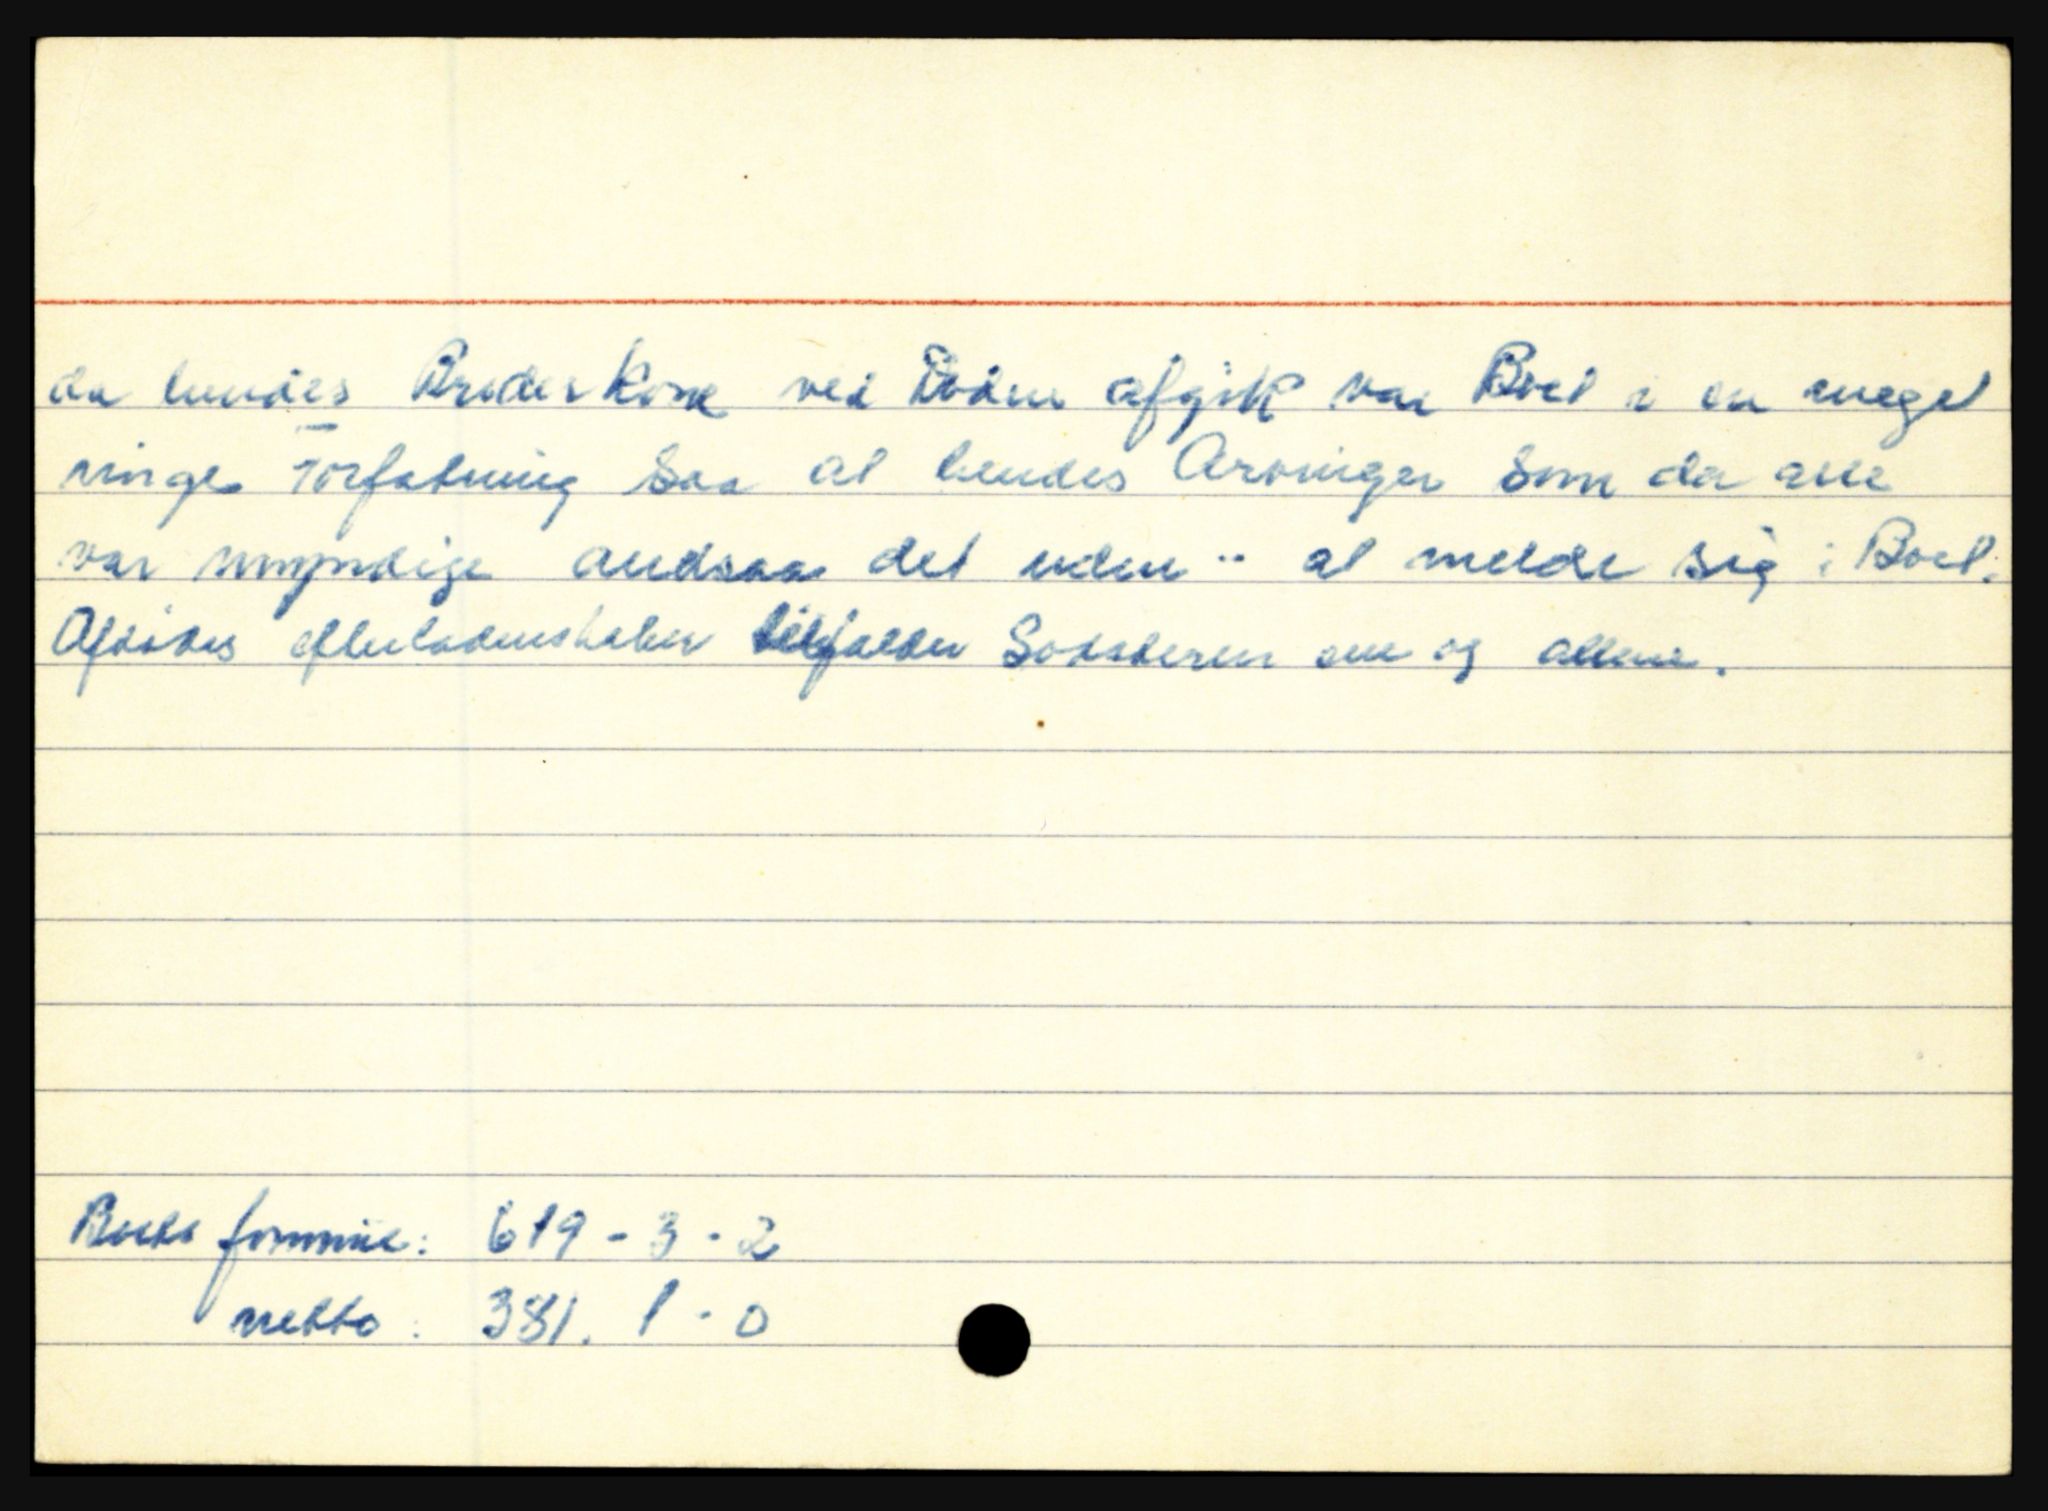 da hendes Broderkone ved Døden afgik var Boet i en meget
ringe Forfatning saa at hendes Arvinger som da alle
var umyndige ansaa det uden " at melde sig i Boet.
Afdødes efterladenskaber tilfalder Søsteren ene og allene.
Boets formue: 619 - 3 - 2
netto: 381. 1 - 0